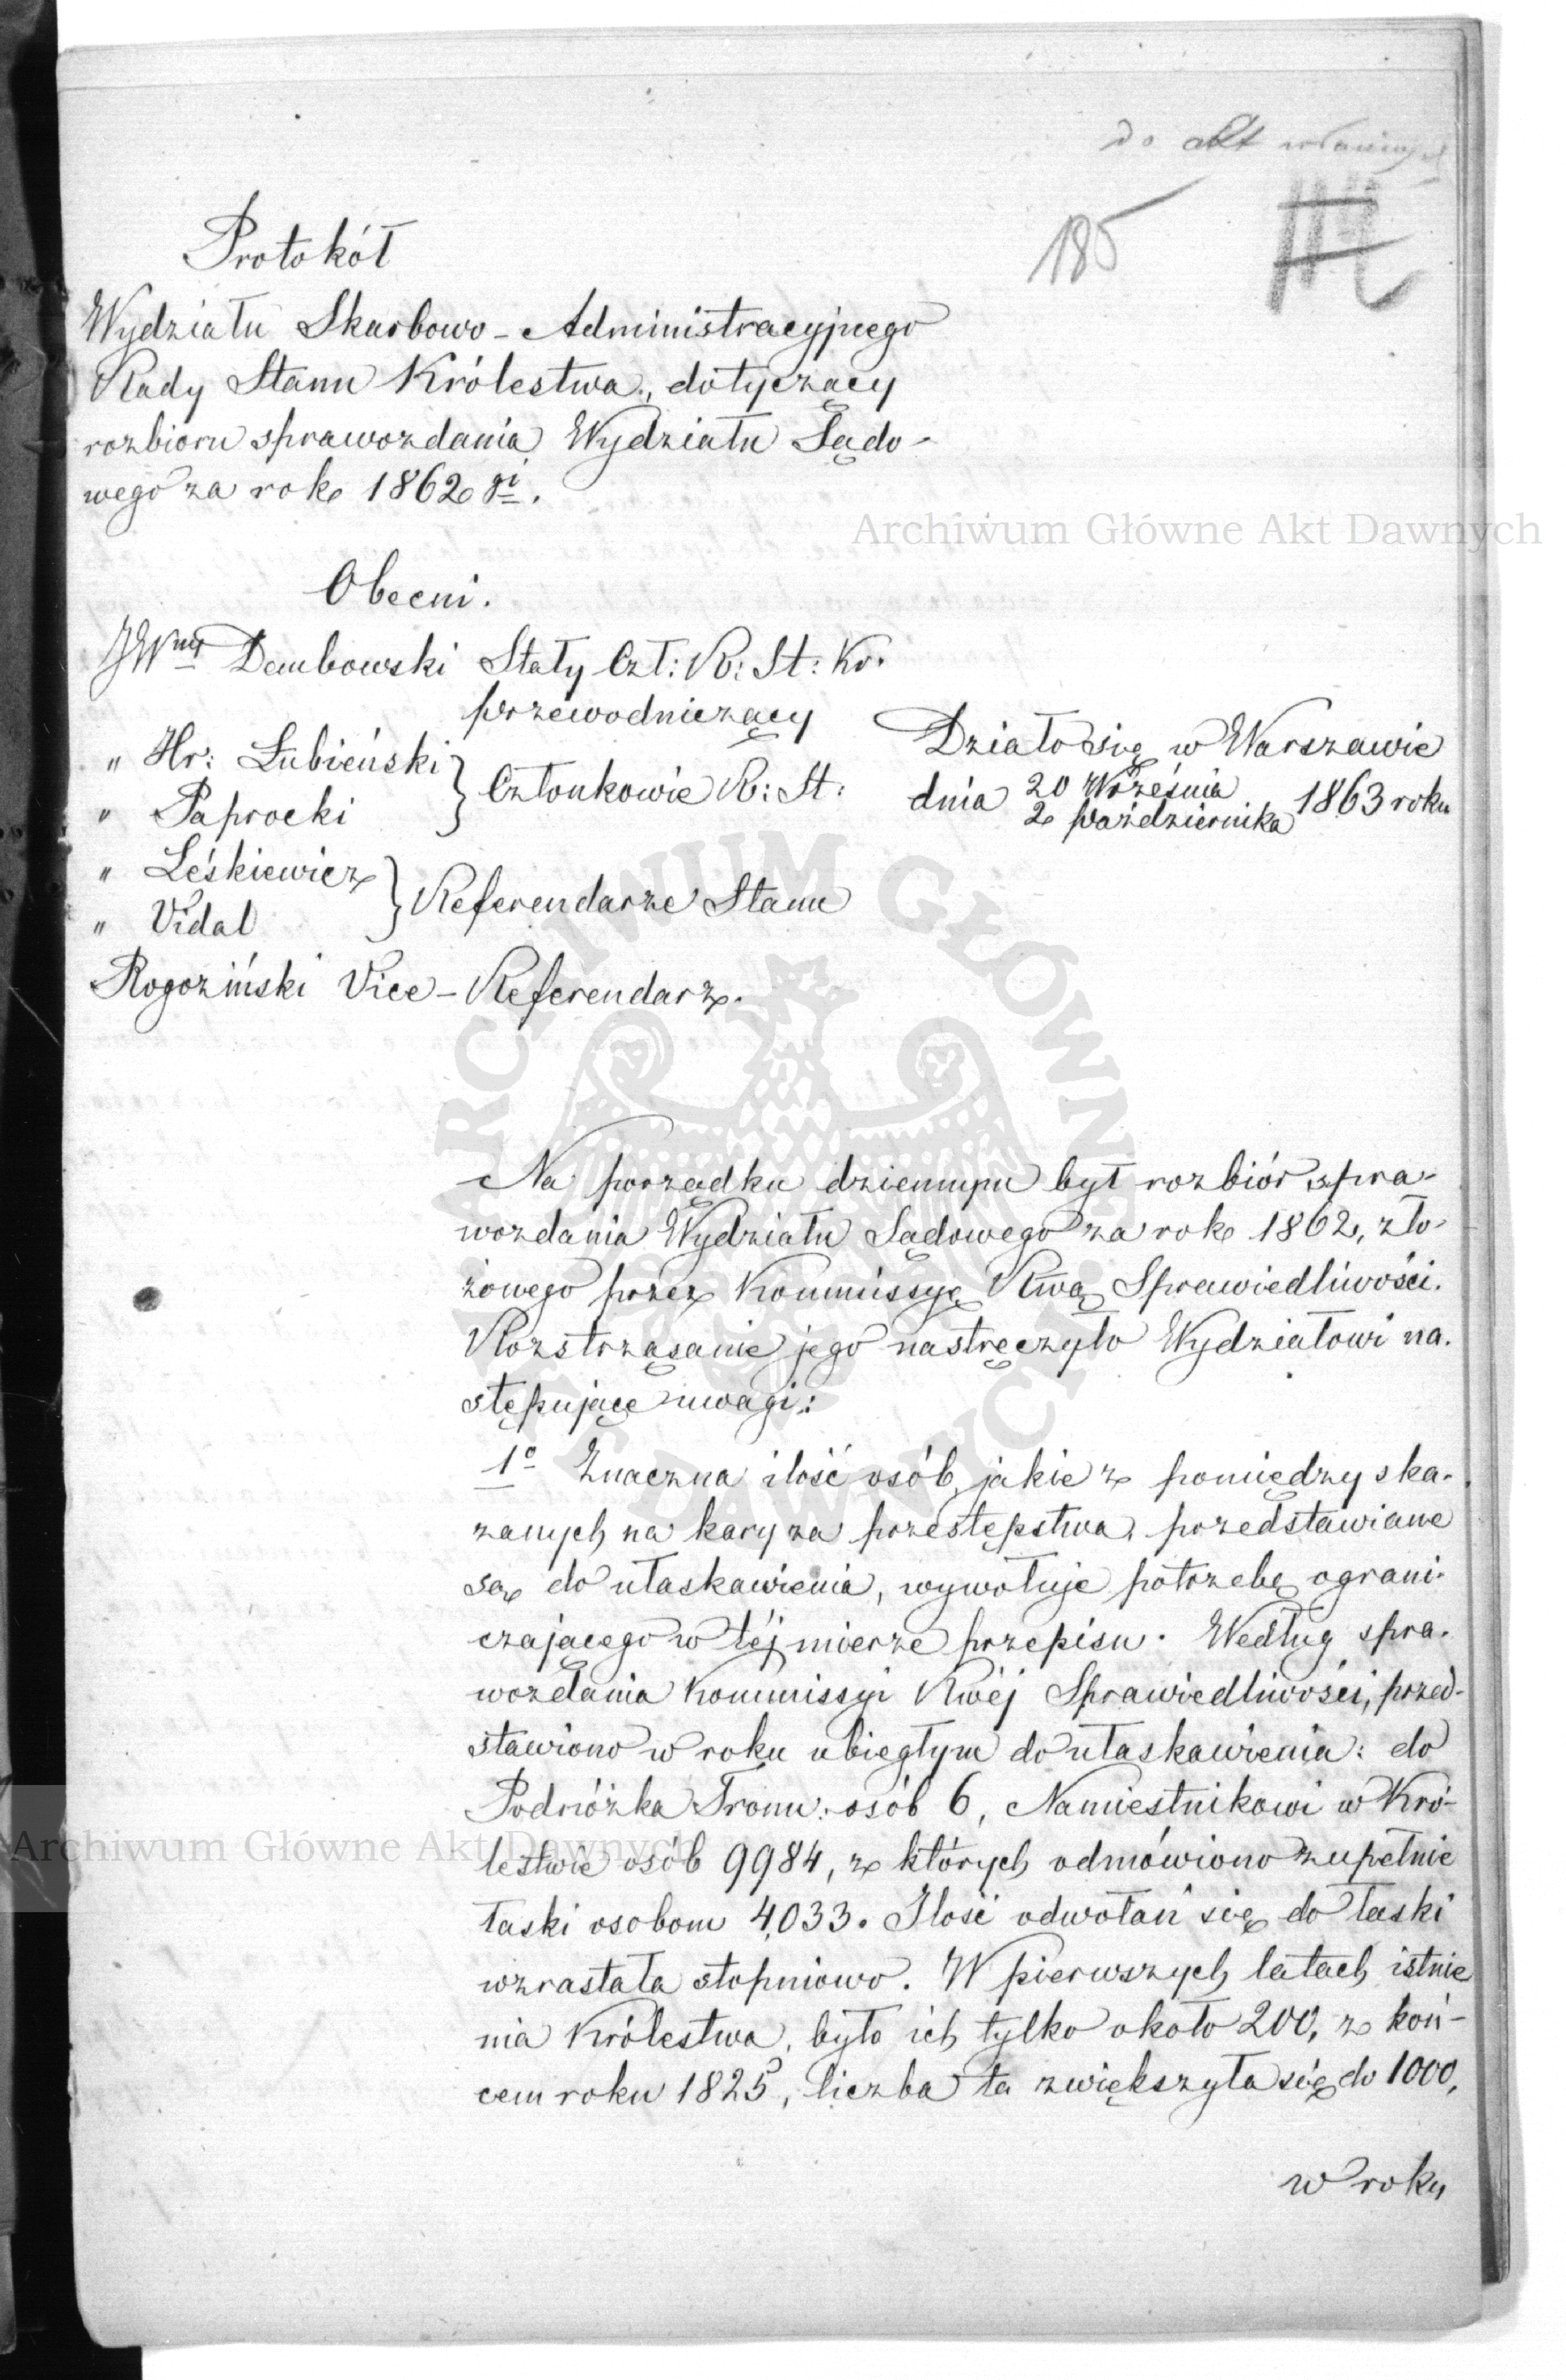 do akt
185
Protokół
Wydziału Skarbowo-Administracyjnego
Rady Stanu Królestwa, dotyczący
rozbioru sprawozdania Wydziału Sądo-
wego za rok 1862gi.
Archiwum Główne Akt Dawnych
Obecni.
JWny Dembowski Stały Czł: R: St: Kr.
przewodniczący
" Hr: Łubieński } Członkowie R: St:
" Paprocki
" Leśkiewicz } Referendarze Stanu
" Vidal
Rogoziński Vice-Referendarz.
Działo się w Warszawie
dnia 20 Września
2 Października 1863 roku
ARCHIWUM GŁÓWNE AKT DAWNYCH
Na porządku dziennym był rozbiór spra-
wozdania Wydziału Sądowego za rok 1862, zło-
żonego przez Kommissyę Rwą Sprawiedliwości.
Rozstrząsanie jego nastręczyło Wydziałowi na-
stępujące uwagi:
1o Znaczna ilość osób, jakie z pomiędzy ska-
zanych na kary za przestępstwa, przedstawiane
są do ułaskawienia, wywołuje potrzebę ograni-
czającego w téj mierze przepisu. Według spra-
wozdania Kommissyi Rwéj Sprawiedliwości, przed-
stawiono w roku ubiegłym do ułaskawienia: do
Podnóżka Tronu: osób 6, Namiestnikowi w Kró-
lestwie osób 9984, z których odmówiono zupełnie
łaski osobom 4,033. Ilość odwołań się do łaski
wzrastała stopniowo. W pierwszych latach istnie
nia Królestwa, było ich tylko około 200, z koń-
cem roku 1825, liczba ta zwiększyła się do 1000,
w roku
Archiwum Główne Akt Dawnych